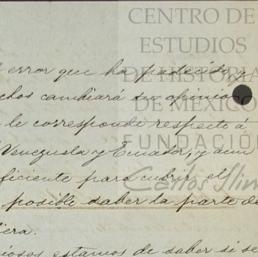 CENTRO DE
ESTUDIOS
DE HISTORIA
DE MÉXICO
FUNDACIÓN
Carlos Slim
error que ha padecido y
chos cambiará su opinion
le corresponde respecto á
Venezuela y Ecuador, y aun
ficiente para cubrir el
posible saber la parte de
iera.
iosos estamos de saber si se